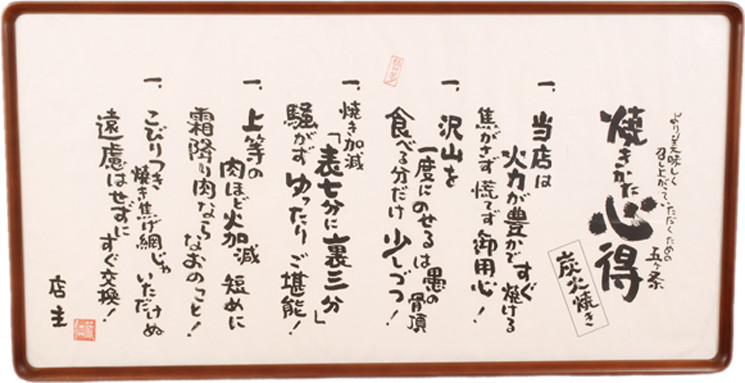 より美味しく
召し上がっていただくための
五ヶ条
焼きかた心得
炭火焼き
一、当店は
火力が豊かで すぐ焼ける
焦がさず 慌てず 御用心！
一、沢山を
一度にのせるは 愚の骨頂
食べる分だけ 少しづつ！
一、焼き加減
「表七分に裏三分」
騒がず ゆったり ご堪能！
一、上等の
肉ほど火加減 短めに
霜降り肉なら なおのこと！
一、こびりつき
焼き焦げ網じゃ いただけぬ
遠慮はせずに すぐ交換！
店主